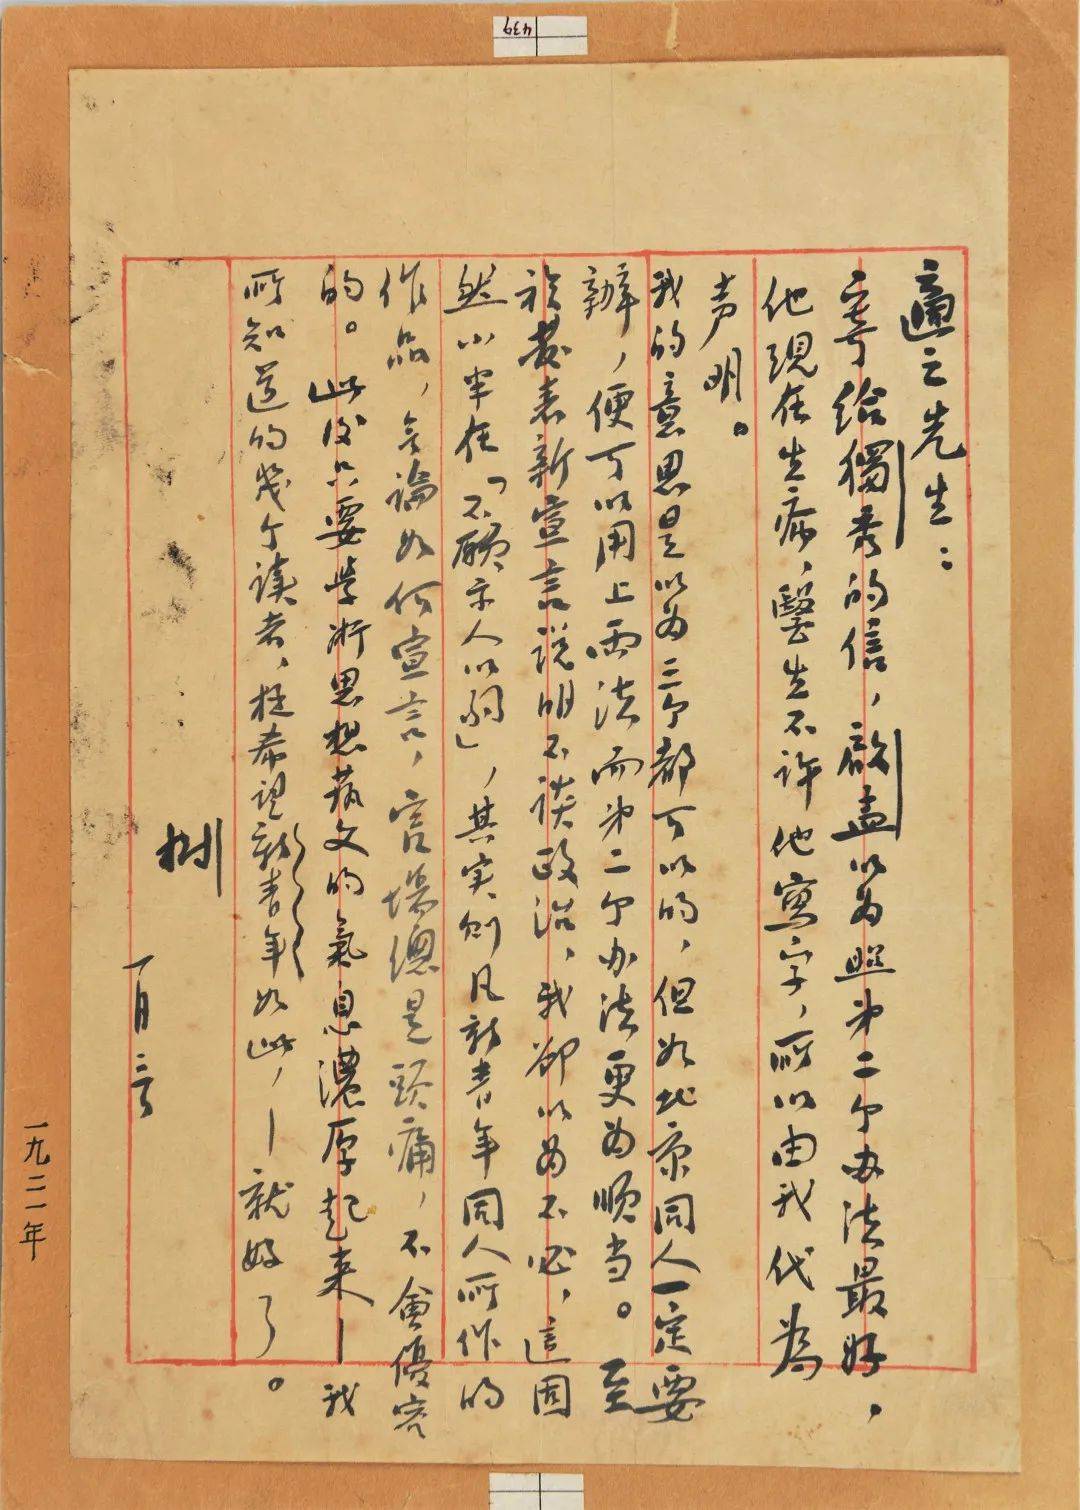 適之先生：
寄給獨秀的信，啟孟以为照第二个办法最好，
他現在生病，醫生不許他寫字，所以由我代為
声明。
我的意思是以为三个都可以的，但如北京同人一定要
辦，便可以用上兩法而第二个办法更为顺当。至
於發表新宣言説明不談政治，我却以为不必，這固
然小半在「不願示人以弱」，其实则凡新青年同人所作的
作品，無論如何宣言，官場總是頭痛，不會優容
的。此後只要学術思想藝文的氣息濃厚起来——我
所知道的幾个讀者，极希望新青年如此，——就好了。
樹
一月三日
一九二一年
439